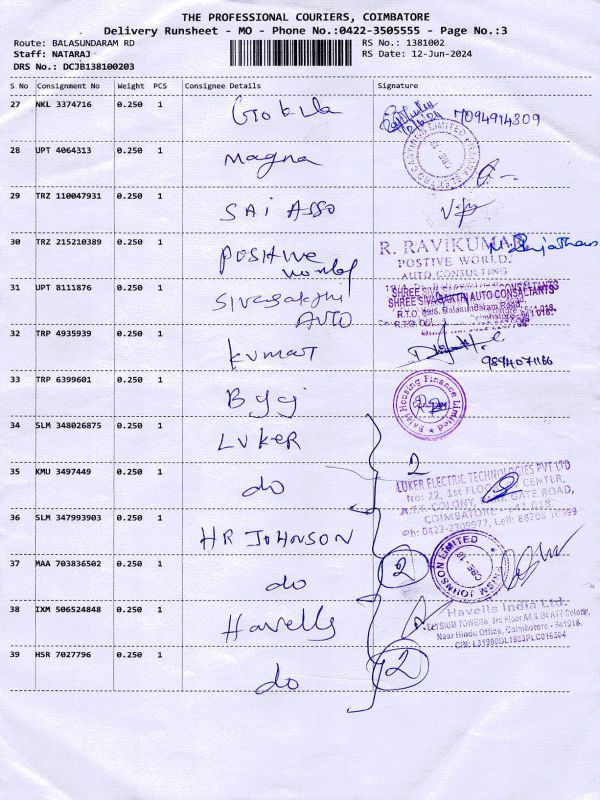 THE PROFESSIONAL COURIERS, COIMBATORE
Delivery Runsheet - MO - Phone No.:0422-3505555 - Page No.:3
Route: BALASUNDARAM RD RS No.: 1381002
Staff: NATARAJ RS Date: 12-Jun-2024
DRS No.: DCJB138100203
S No Consignment No Weight PCS Consignee Details Signature
27 NKL 3374716 0.250 1 Gokila 7094914309
28 UPT 4064313 0.250 1 Magna
29 TRZ 110047931 0.250 1 SAI ASSO
30 TRZ 215210389 0.250 1 Positive World
R. RAVIKUMAR
POSTIVE WORLD.
AUTO CONSULTING
31 UPT 8111876 0.250 1 Sivasakthi AUTO
SHREE SIVASAKTHI AUTO CONSULTANTS
32 TRP 4935939 0.250 1 Kumar
33 TRP 6399601 0.250 1 Bajaj
Bajaj Housing Finance Limited
34 SLM 348026875 0.250 1 LUKER
2
35 KMU 3497449 0.250 1 do
LUKER ELECTRIC TECHNOLOGIES PVT LTD
No: 22, 1st FLOOR, CENTER,
A.T.T. COLONY, GATE ROAD,
COIMBATORE
36 SLM 347993903 0.250 1 HR JOHNSON
37 MAA 703836502 0.250 1 do
2
38 IXM 506524848 0.250 1 Havells
Havells India Ltd.
ELYSIUM TOWERS 3rd Floor
Near Hindu Office, Coimbatore - 641018.
39 HSR 7027796 0.250 1 do
2